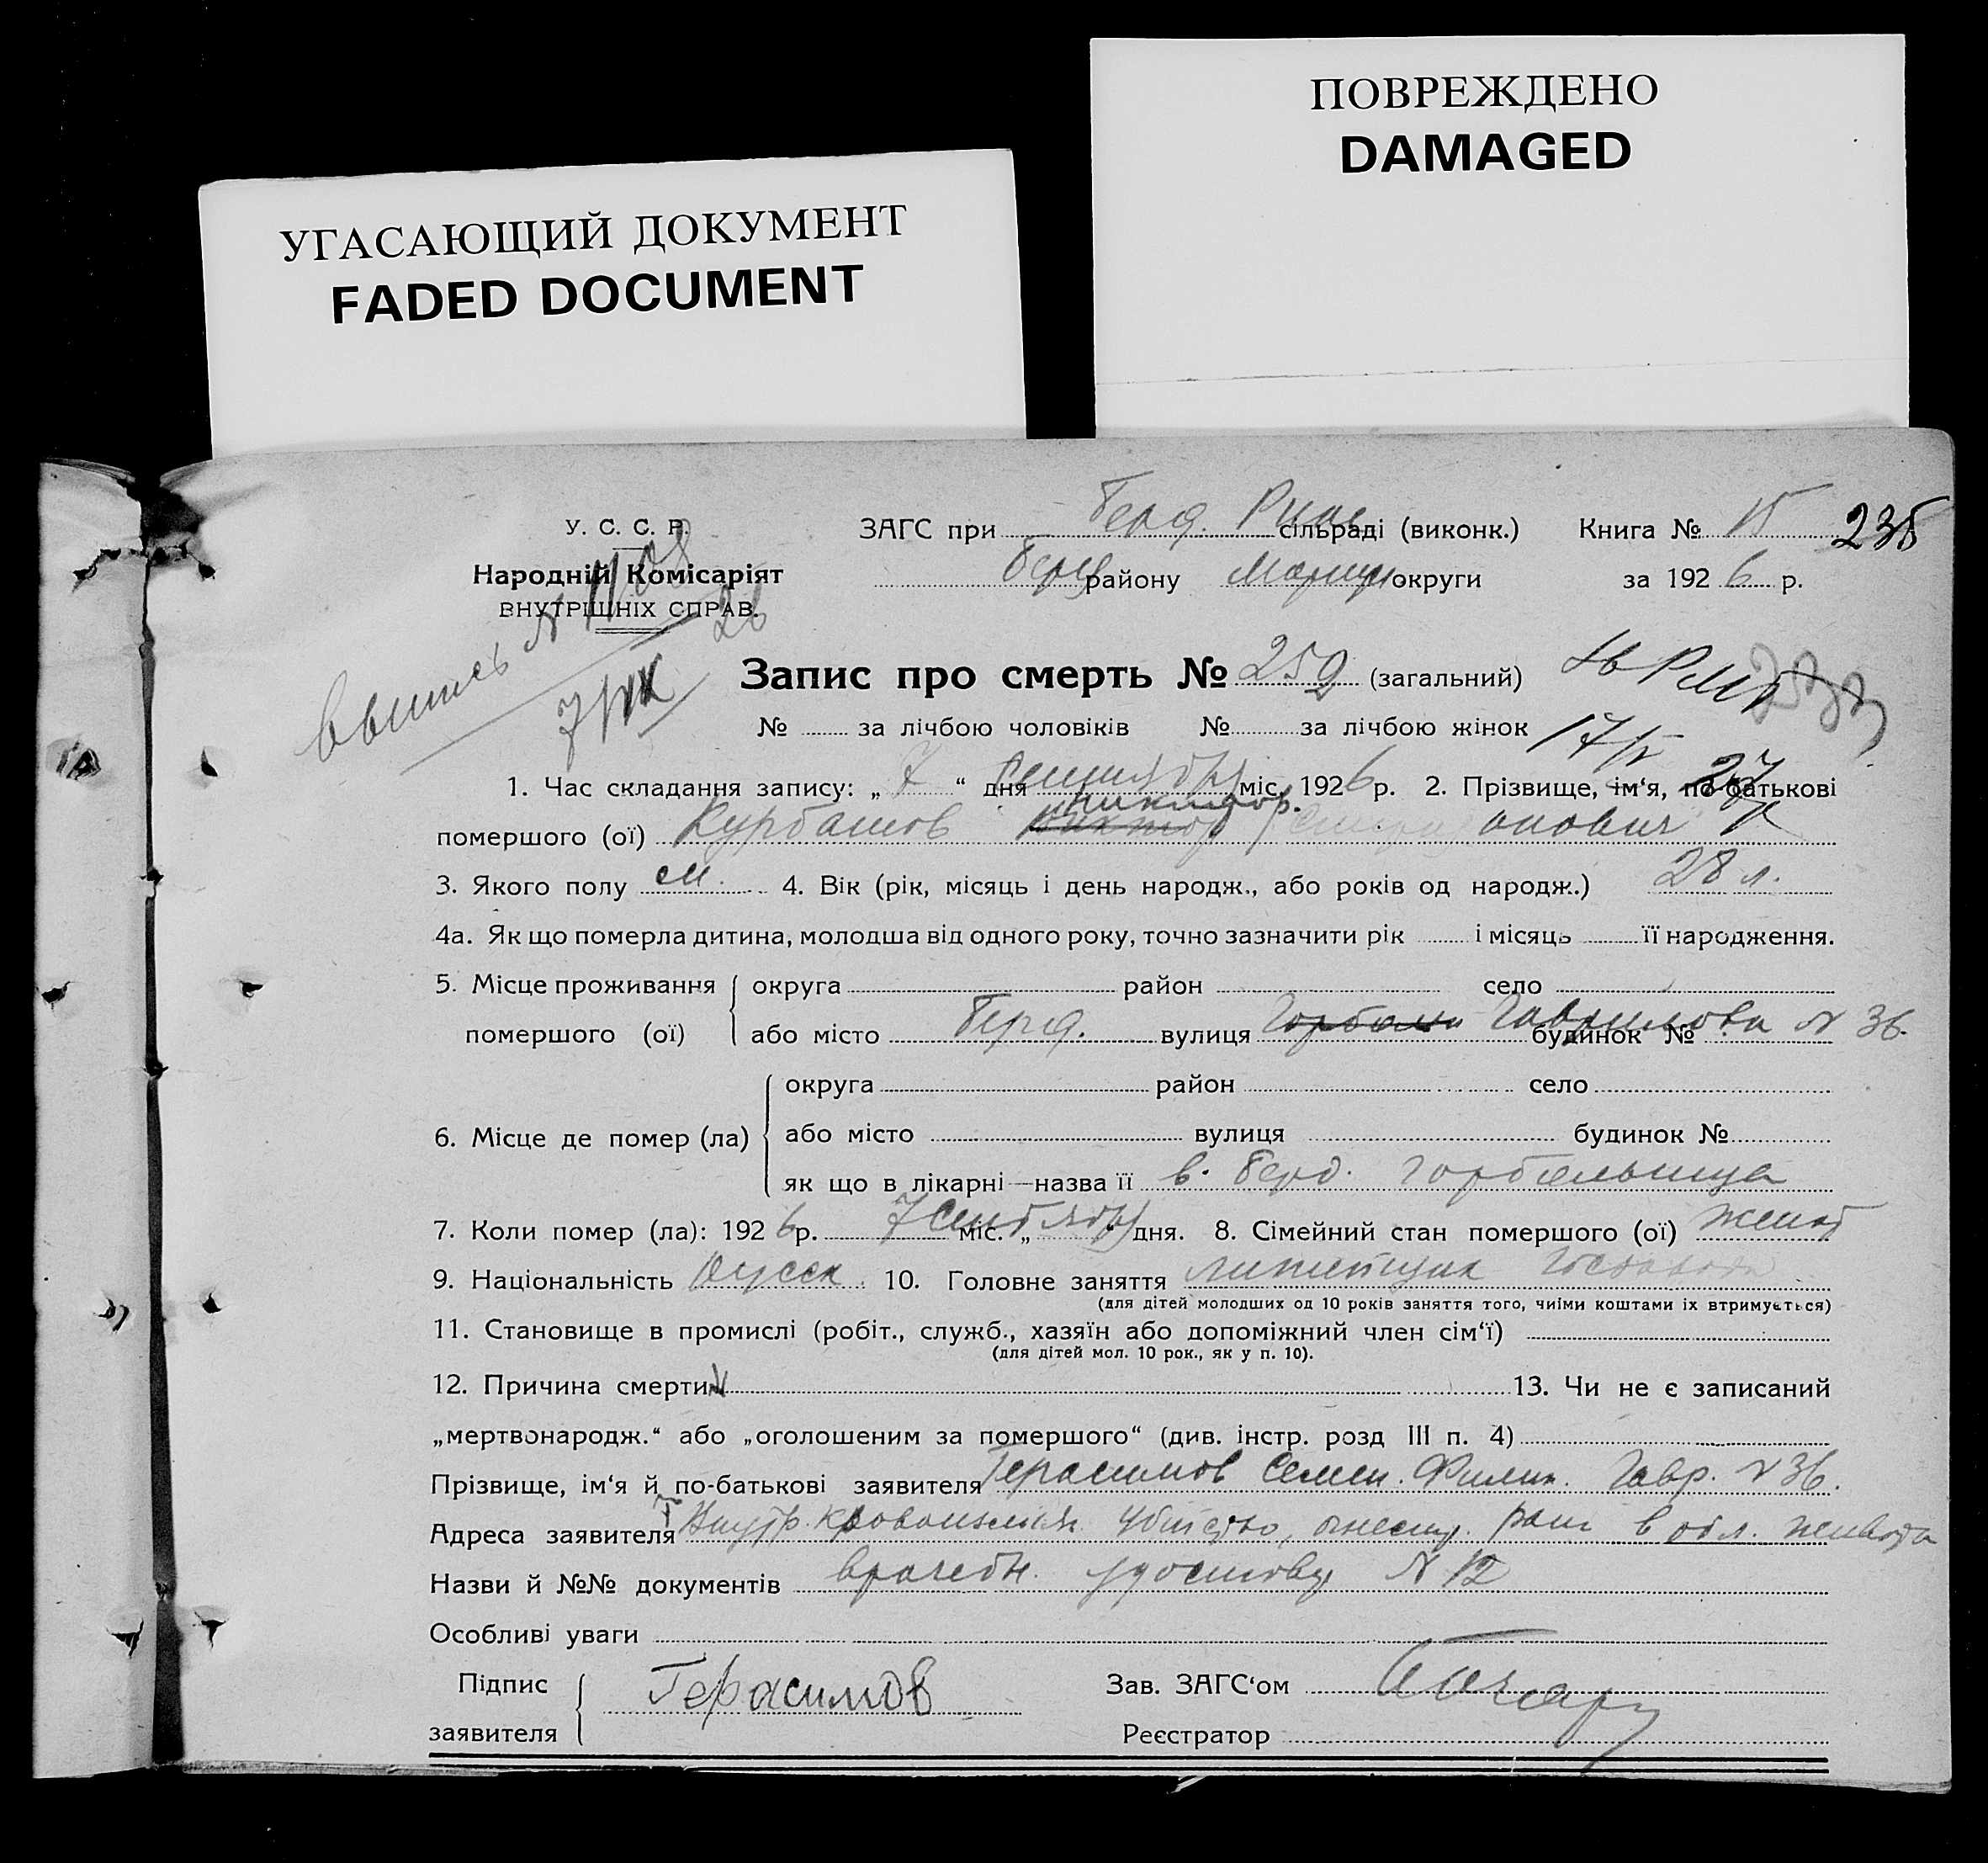 ПОВРЕЖДЕНО
DAMAGED
УГАСАЮЩИЙ ДОКУМЕНТ
FADED DOCUMENT
У. С. С. Р. ЗАГС при Берд. сільраді (виконк.) Книга № 235
Народній Комісаріят району округи за 1926 р.
ВНУТРІШНІХ СПРАВ. 26
Запис про смерть № 259 (загальний)
№ за лічбою чоловіків № за лічбою жінок
1. Час складання запису: „ 7 “ дня сентября міс. 1926 р. 2. Прізвище, ім‘я, по батькові
помершого (ої) Курбатов
3. Якого полу м. 4. Вік (рік, місяць і день народж., або років од народж.) 28 л.
4а. Як що померла дитина, молодша від одного року, точно зазначити рік і місяць її народження.
5. Місце проживання округа район село
помершого (ої) або місто Берд. вулиця Гаврилова будинок № N 36.
округа район село
6. Місце де помер (ла) або місто вулиця будинок №
як що в лікарні—назва її в. Берд. горбольница
7. Коли помер (ла): 1926 р. 7 сентября міс. „ “ дня. 8. Сімейний стан помершого (ої) женат
9. Національність русск. 10. Головне заняття литейщик
(для дітей молодших од 10 років заняття того, чиїми коштами їх втримується)
11. Становище в промислі (робіт., служб., хазяїн або допоміжний член сім‘ї)
(для дітей мол. 10 рок., як у п. 10).
12. Причина смерти 13. Чи не є записаний
„мертвонародж.“ або „оголошеним за помершого“ (див. інстр. розд III п. 4)
Прізвище, ім‘я й по-батькові заявителя Герасимов Семен. Филип. Гавр. N 36.
Адреса заявителя Внутр. кровоизлиян. убийство, огнестр. ран. в обл. живота
Назви й №№ документів врачебн. удостовер N 12
Особливі уваги
Підпис Герасимов Зав. ЗАГС‘ом
заявителя Реєстратор